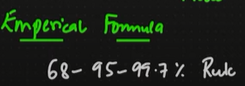 Emperical Formula
68-95-99.7% Rule